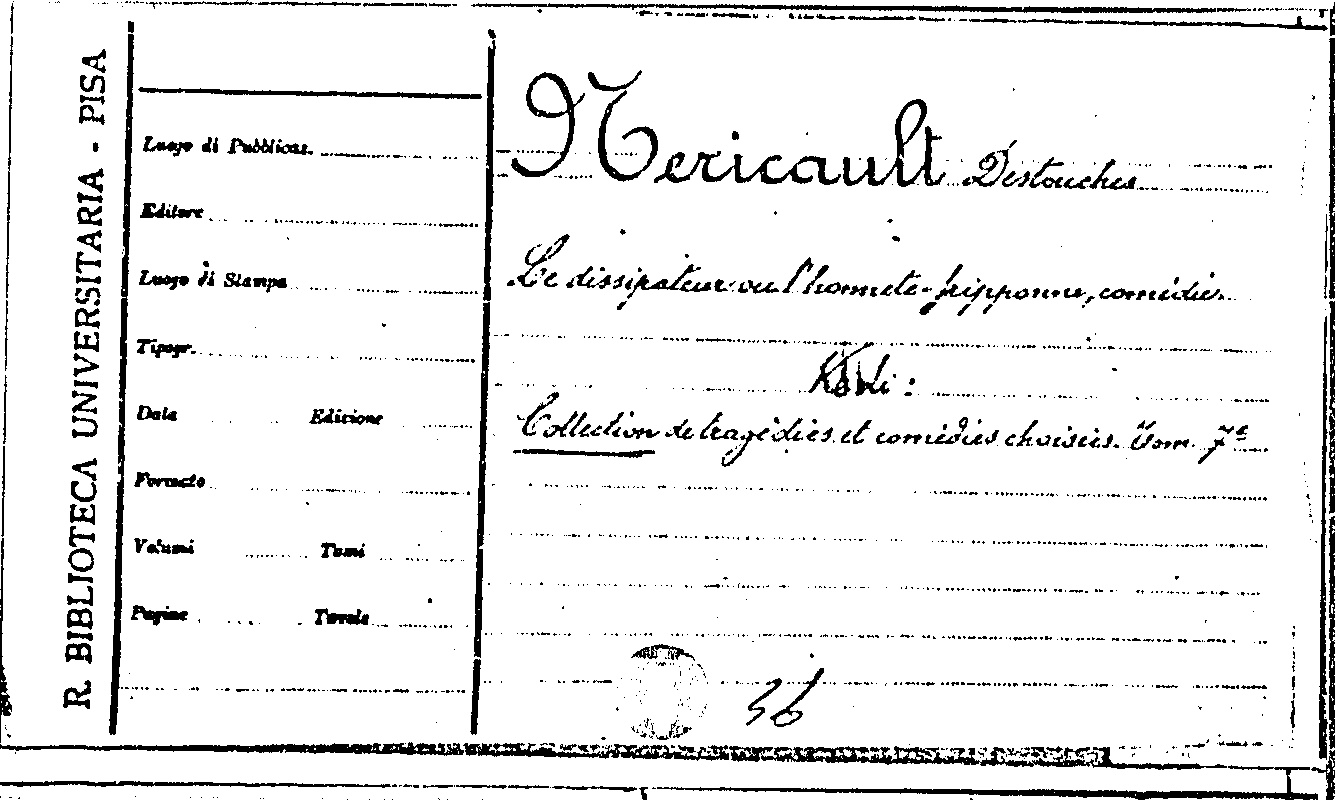 R. BIBLIOTECA UNIVERSITARIA - PISA
Luogo di Pubblicaz.
Editore
Luogo di Stampa
Tipogr.
Data Edizione
Formato
Volumi Tomi
Pagine Tavole
Nericault Destouches
Le dissipateur ou l'honnete-fripponne, comédie.
Vedi:
Collection de tragédies et comédies choisies. Tom. 7º
36